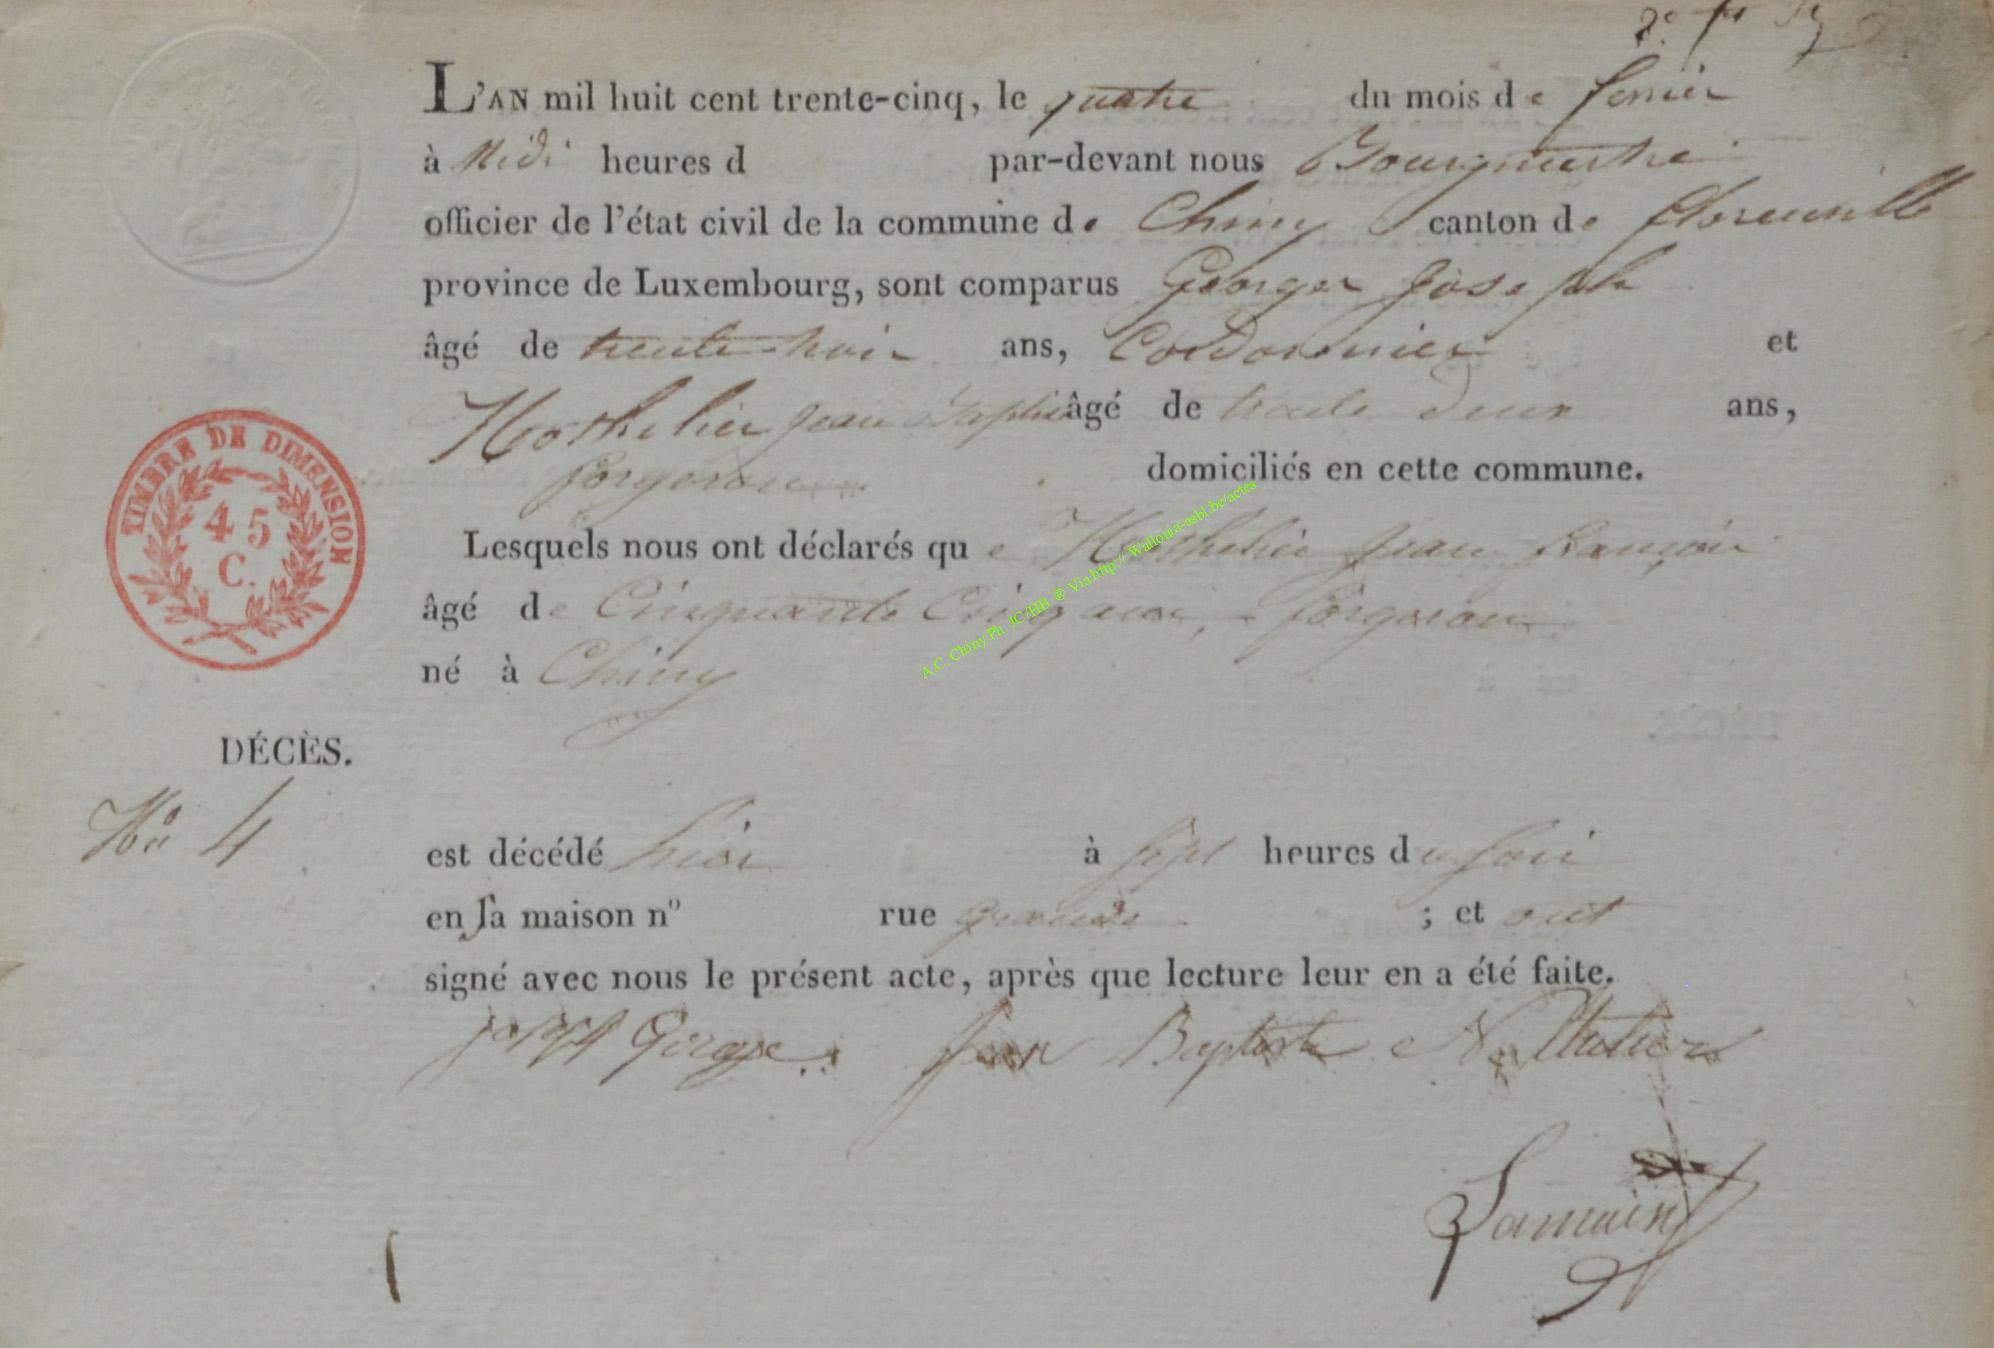 L'AN mil huit cent trente-cinq, le quatre du mois de fevrier
à Midi heures d par-devant nous Bourgmestre
officier de l'état civil de la commune de Chiny canton de florenville
province de Luxembourg, sont comparus Georges Joseph
âgé de trente trois ans, Cordonnier et
jean baptiste âgé de trente deux ans,
forgeron domiciliés en cette commune.
TIMBRE DE DIMENSION
45
C.
Lesquels nous ont déclarés que jean françois
âgé de Cinquante Cinq ans, forgeron
né à Chiny
A.C. Chiny Ph. JC HB @ Via http:// Wallonia-asbl.be/actes
DÉCÈS.
No 4
est décédé hier à sept heures du soir
en sa maison nº rue grande ; et ont
signé avec nous le présent acte, après que lecture leur en a été faite.
joseph George jean Baptiste